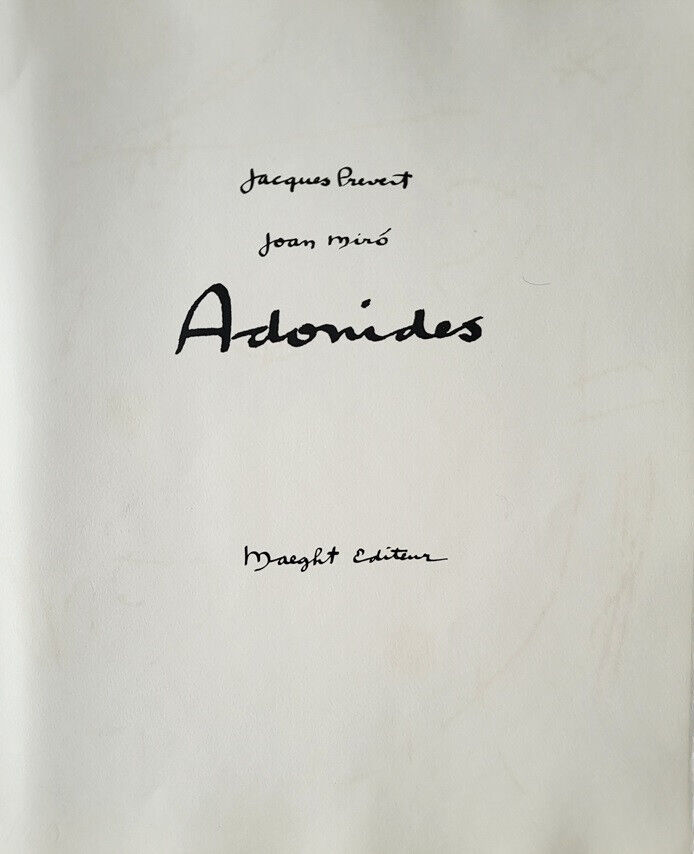 Jacques Prevert
Joan Miró
Adonides
Maeght Editeur